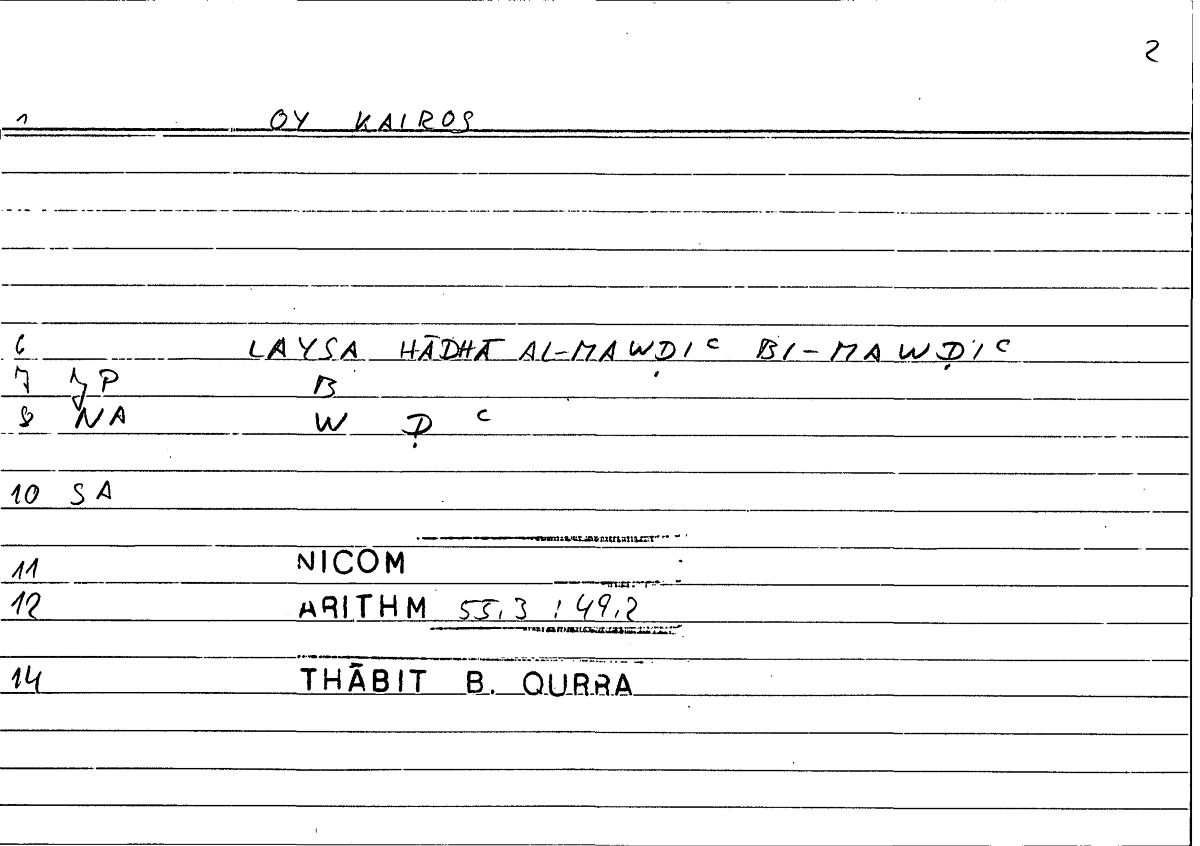 2
1 OY KAIROS
6 LAYSA HĀDHĀ AL-MAWḌIᶜ BI-MAWḌIᶜ
7 P B
8 NA W Ḍ ᶜ
10 SA
11 NICOM
12 ARITHM 55,3 ; 49,2
14 THĀBIT B. QURRA